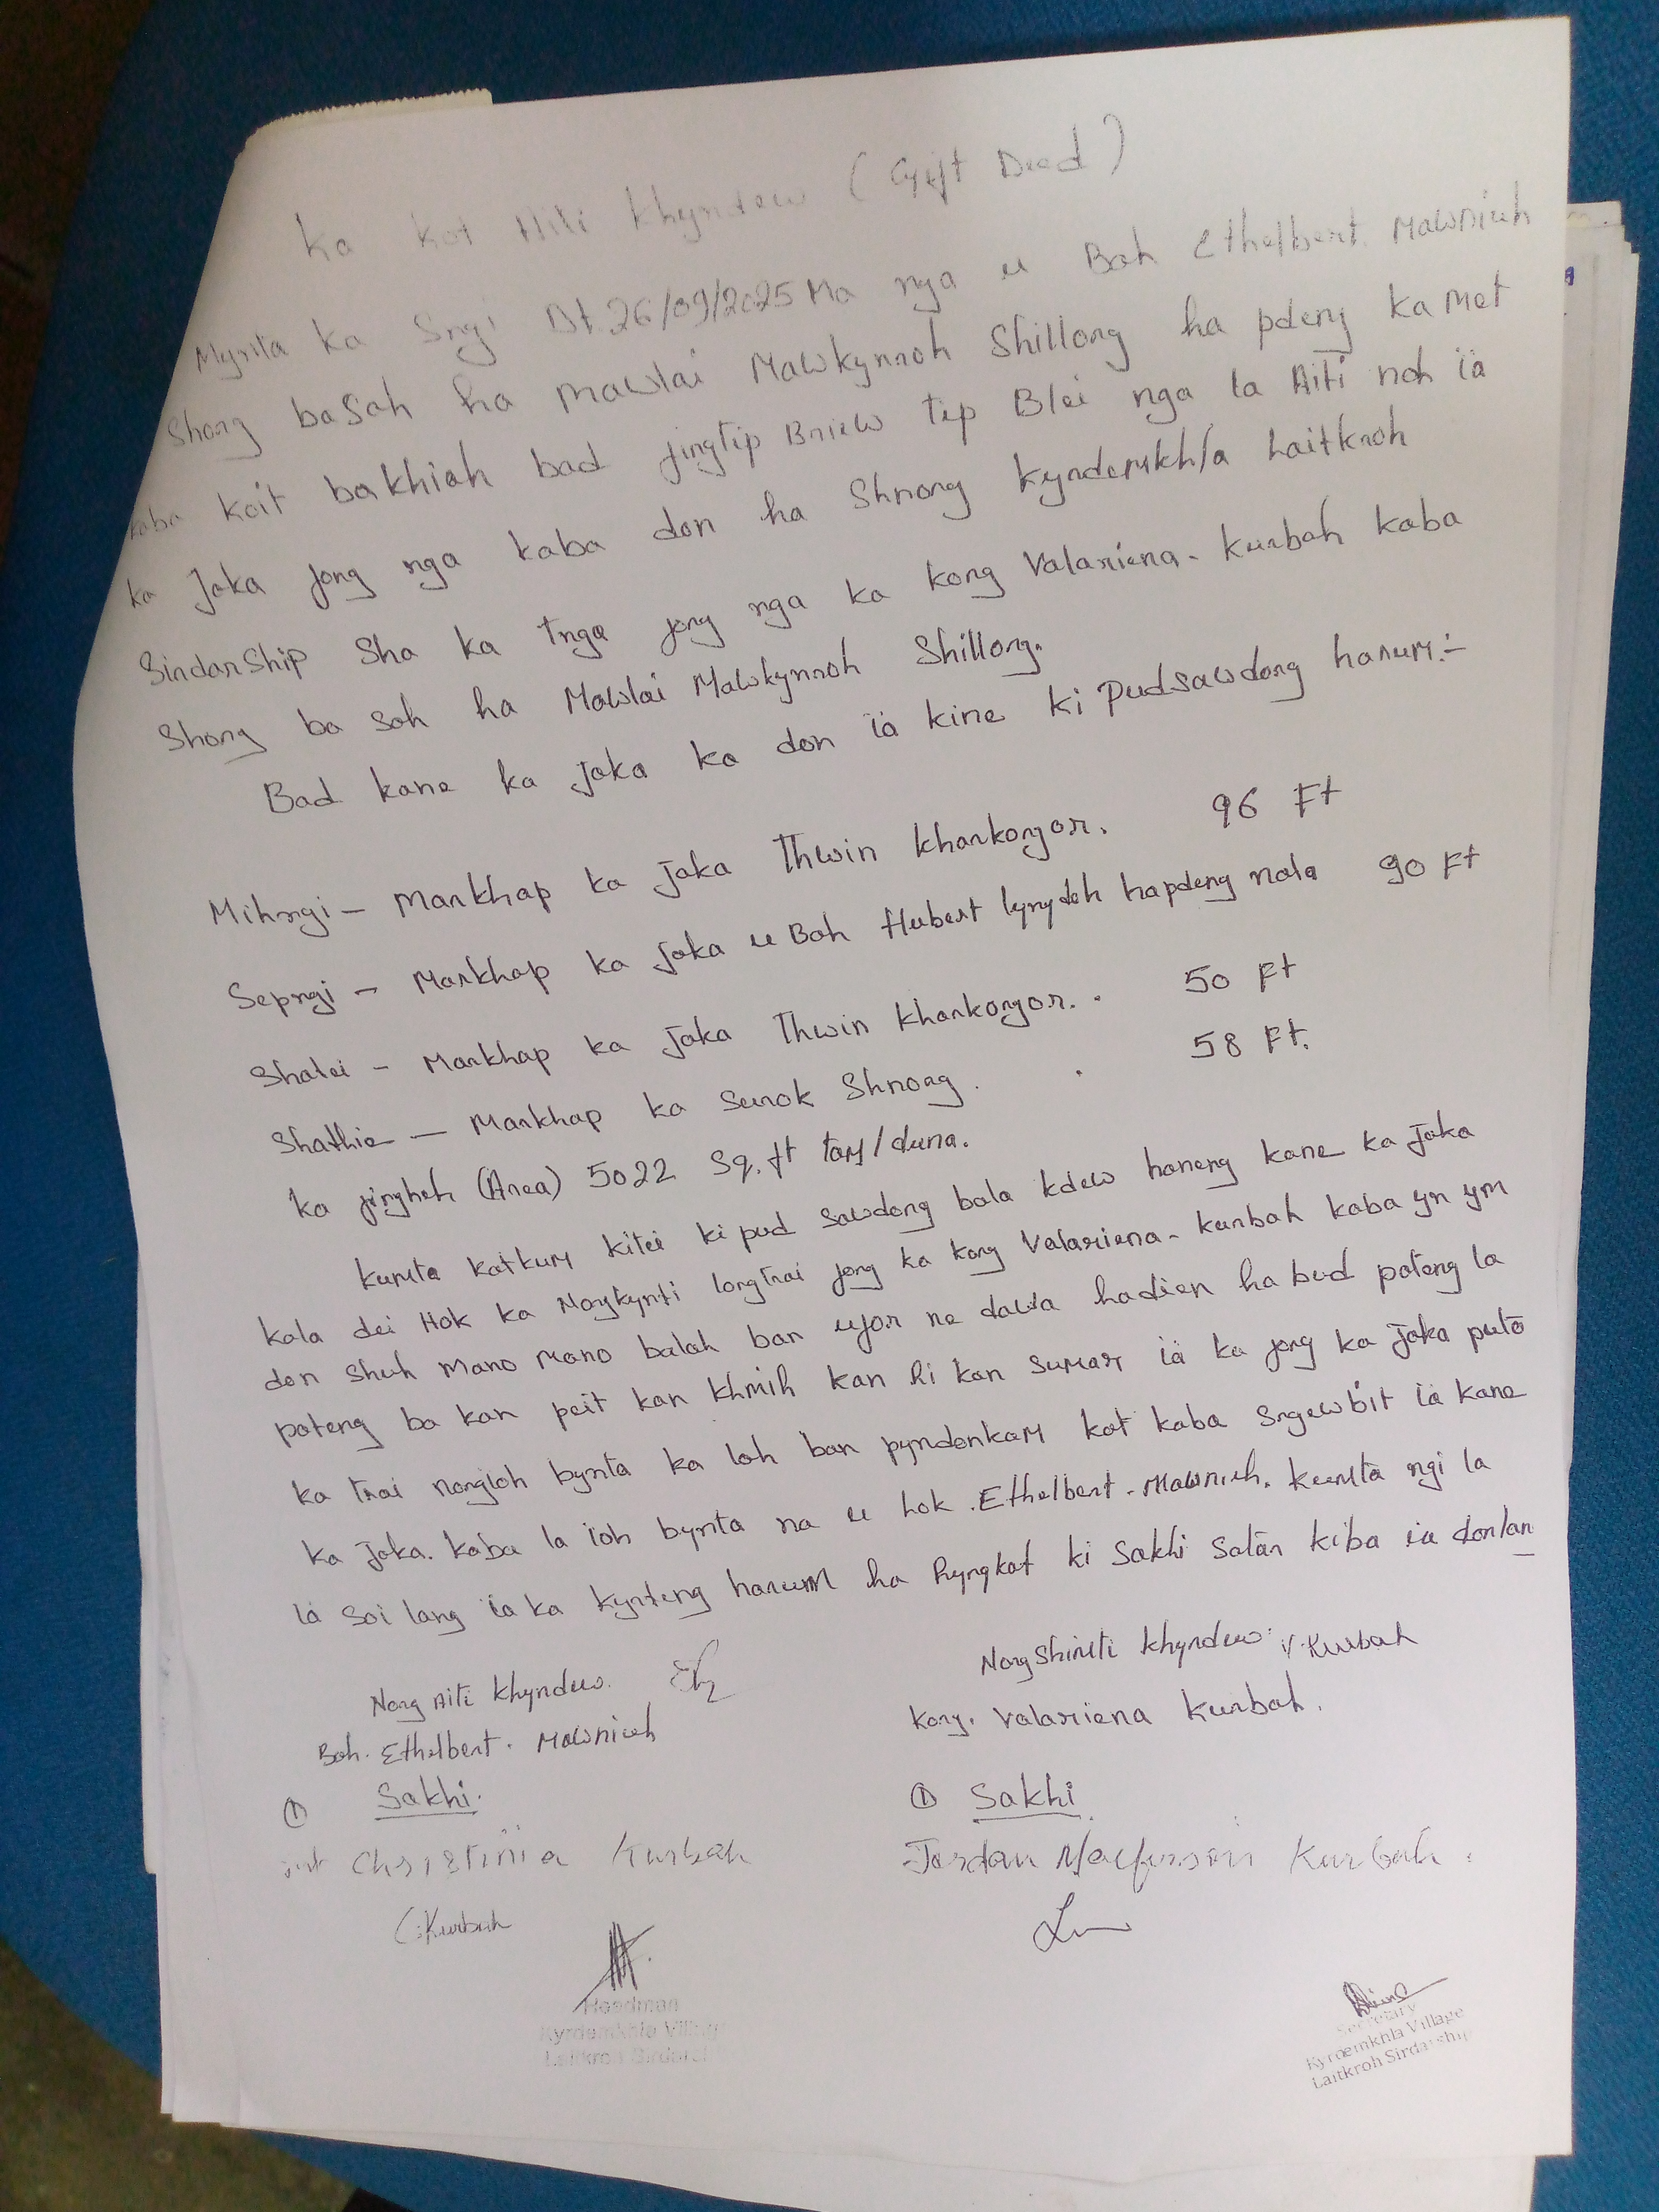 Ka kot Aiti Khyndew (Gift Deed)
Mynta ka Sngi Dt 26/09/2025 Ma nga u Bah Ethelbert Mawniuh
Shong basah ha Mawlai Mawkynroh Shillong ha pdeng ka met
kaba koit bakhiah bad jingtip Briew tip Blei nga la Aiti noh ïa
ka Jaka jong nga kaba don ha Shnong Kyndemkhla Laitkroh
Sirdarship Sha ka tnga jong nga ka kong Valariena - Kurbah kaba
Shong ba sah ha Mawlai Mawkynroh Shillong.
Bad kane ka jaka ka don ïa kine ki pudsawdong harum:-
Mihngi - Markhap ka jaka Thwin Kharkongor. 96 Ft
Sepngi - Markhap ka jaka u Bah Hubert lyngdoh hapdeng nala 90 Ft
Shatei - Markhap ka Jaka Thwin Kharkongor. 50 Ft
Shathie - Markhap ka Surok Shnong. 58 Ft.
Ka jingheh (Area) 5022 Sq.ft tam/duna.
Kumta katkum kitei ki pud sawdong bala kdew haneng kane ka jaka
kala dei Hok ka Noykynti longtrai jong ka kong Valariena - Kurbah kaba yn ym
don shuh mano mano balah ban ujor ne dawa hadien habud pateng la
pateng ba kan peit kan khmih kan ri kan sumar ïa ka jong ka jaka puta
ka trai nongioh bynta ka loh ban pyndonkam kat kaba sngewbit ïa kane
ka jaka. kaba la ïoh bynta na u hok. Ethelbert - Mawniuh. kumta ngi la
ïa soi lang ïa ka kyrteng harum ha khyngkat ki Sakhi Satar kiba ïa donlan
Nong Aiti Khyndew.
Bah. Ethelbert. Mawniuh
Nongshimti khyndew. V. Kurbah
Kong. Valariena Kurbah.
① Sakhi.
Christinia Kurbah
C. Kurbah
① Sakhi
Jordan Kurbah.
Headman
Kyrdemkhla Village
Laitkroh Sirdarship
Secretary
Kyrdemkhla Village
Laitkroh Sirdarship